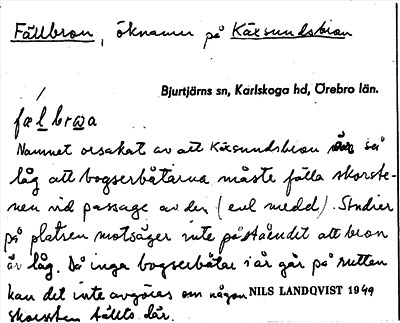 Fällbron, öknamn på Käxsundsbron
Bjurtjärns sn, Karlskoga hd, Örebro län.
fæl brωa
Namnet orsakat av att Käxsundsbron är så
låg att bogserbåtarna måste fälla skorste-
nen vid passage av den (enl medd). Studier
på platsen motsäger inte påståendet att bron
är låg. Då inga bogserbåtar i år går på rutten
kan det inte avgöras om någon NILS LANDQVIST 1949
skorsten fällts där.